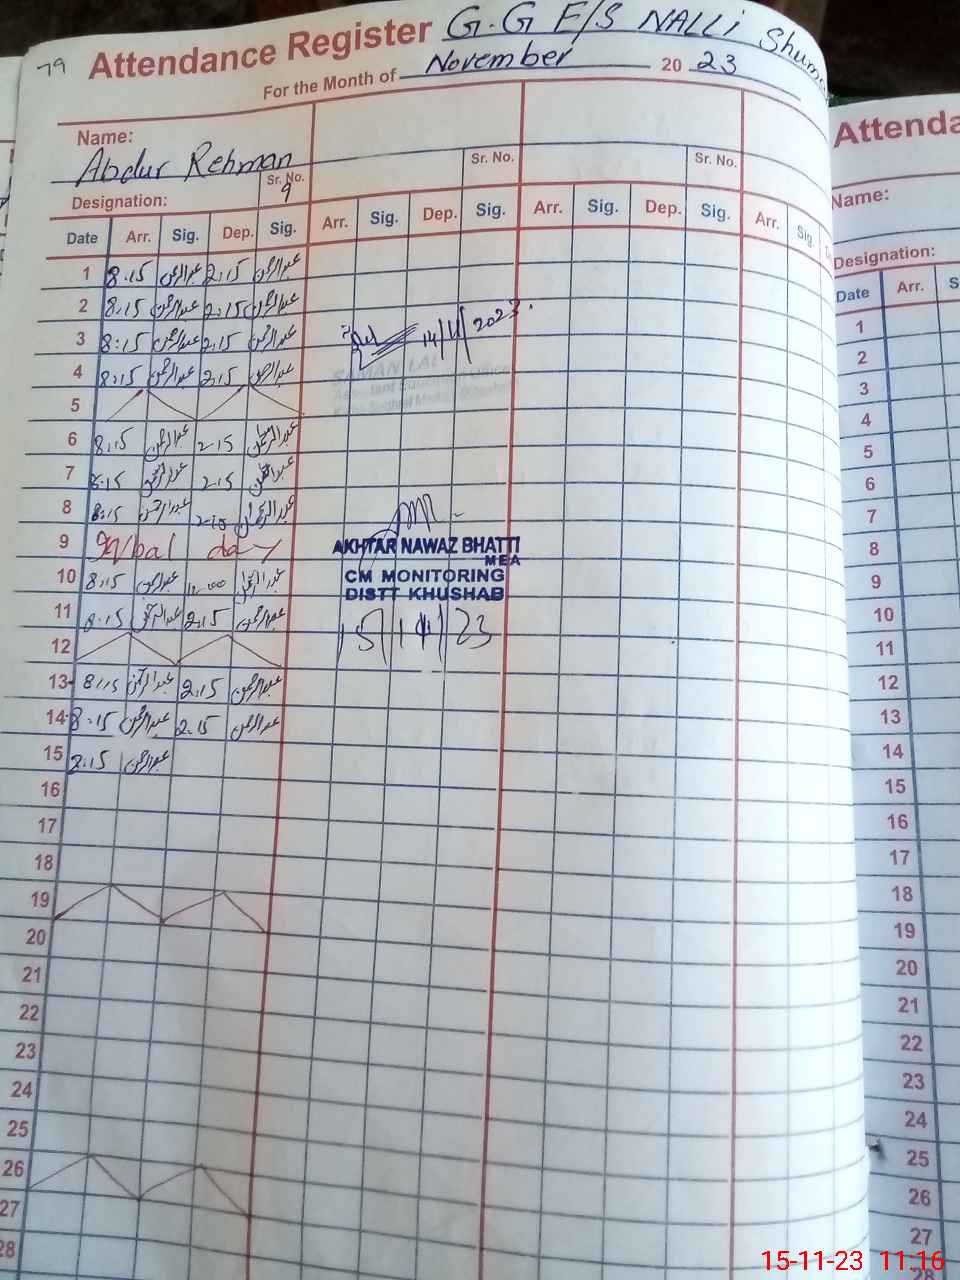 79 Attendance Register G.G E/S NALLI
For the Month of November 20 23
Name:
Abdur Rehman
Sr. No. 9 Sr. No. Sr. No.
Designation:
Date Arr. Sig. Dep. Sig. Arr. Sig. Dep. Sig. Arr. Sig. Dep. Sig. Arr. Sig.
1 8.15 عبدالرحمن 2.15 عبدالرحمن
2 8.15 عبدالرحمن 2.15 عبدالرحمن
3 8:15 عبدالرحمن 2.15 عبدالرحمن
14/11/2023.
4 8.15 عبدالرحمن 2.15 عبدالرحمن
SAMAN LAL
5
6 8.15 عبدالرحمن 2.15 عبدالرحمن
7 8.15 عبدالرحمن 2.15 عبدالرحمن
8 8.15 عبدالرحمن 2.15 عبدالرحمن
9 Iqbal day
AKHTAR NAWAZ BHATTI
MEA
10 8.15 عبدالرحمن عبدالرحمن
CM MONITORING
DISTT KHUSHAB
11 8.15 عبدالرحمن 2.15 عبدالرحمن
15/11/23
12
13 8.15 عبدالرحمن 2.15 عبدالرحمن
14 8.15 عبدالرحمن 2.15 عبدالرحمن
15 عبدالرحمن
16
17
18
19
20
21
22
23
24
25
26
27
28
Attenda
Name:
Designation:
Date Arr. S
1
2
3
4
5
6
7
8
9
10
11
12
13
14
15
16
17
18
19
20
21
22
23
24
25
26
27
15-11-23 11:16